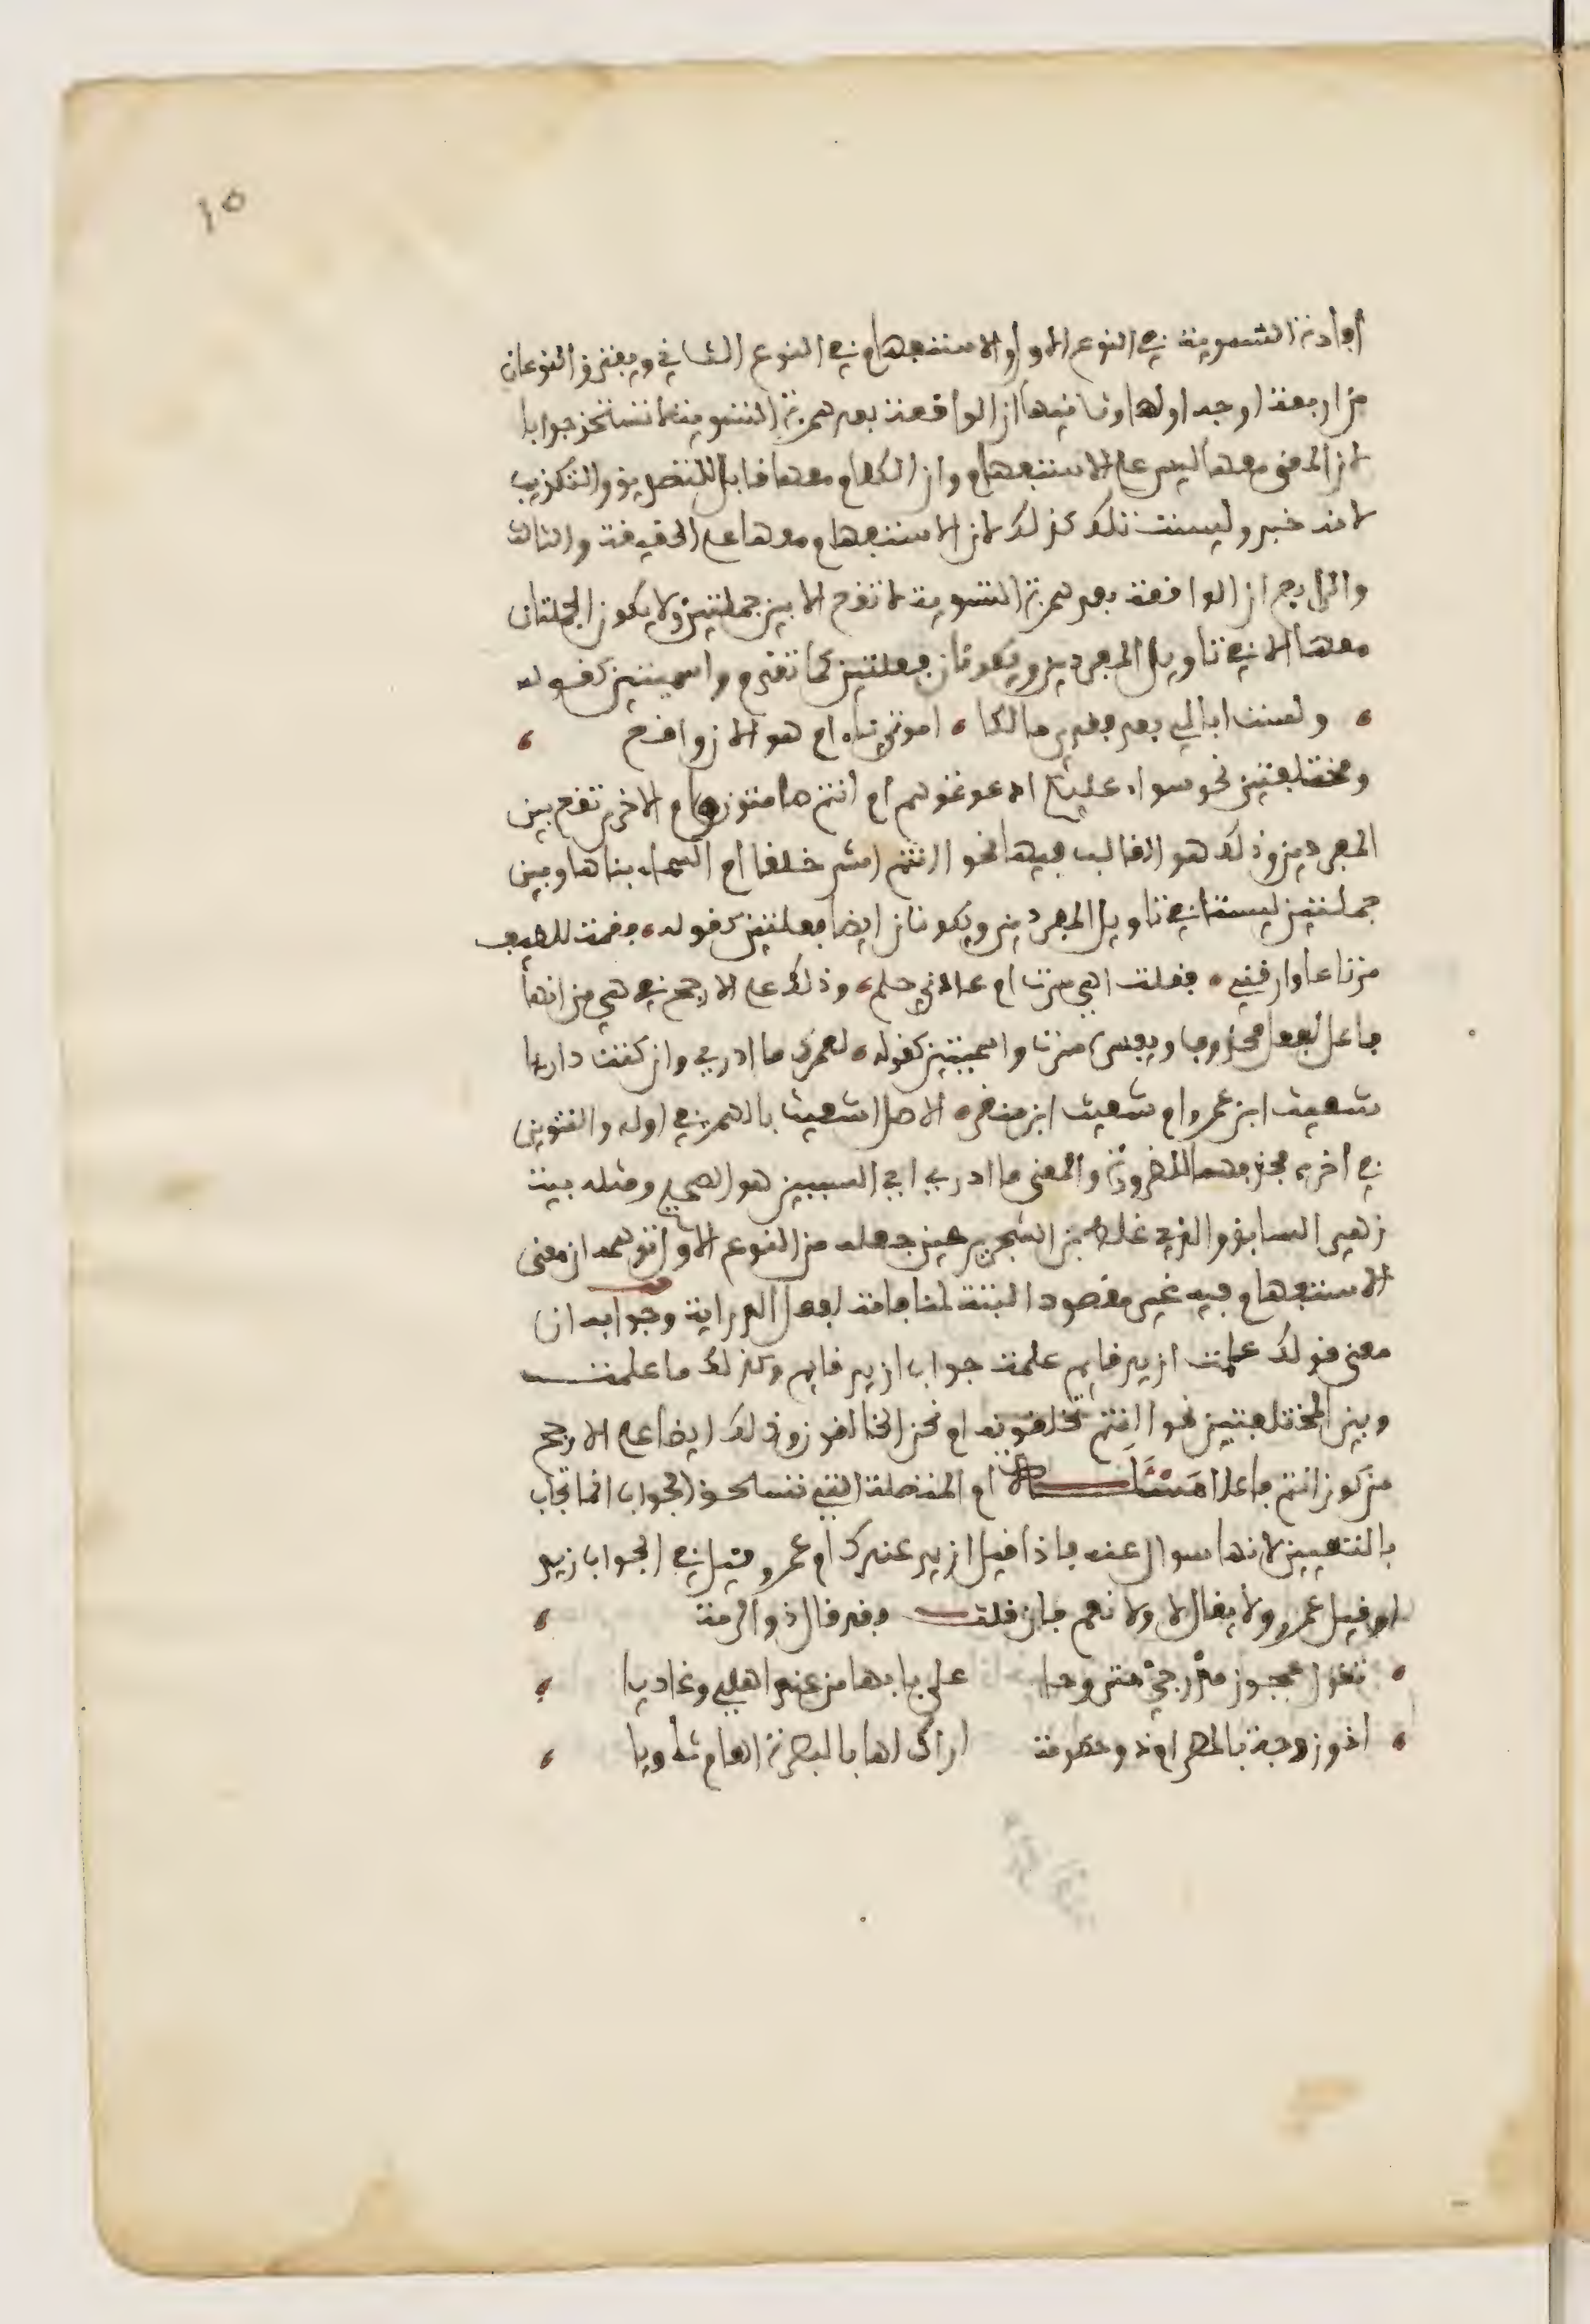 ١٥
أفادة التسوية في النوع الاول والاستفهام في النوع الثاني ويفترق النوعان
من اربعة اوجه اولها وثانيها ان الواقعة بعد همزة التسوية لا تستحق جوابا
لان المعنى معها ليس على الاستفهام وان الكلام معها قابل للتصديق والتكذيب
لانه خبر وليست تلك كذلك لان الاستفهام معها على الحقيقة والثالث
والرابع ان الواقعة بعد همزة التسوية لا تقع الا بين جملتين ولا يكون الجملتان
معها الا في تاويل المفردين ويكونان فعلتين كما تقدم واسميتين كقوله
ولست ابالي بعد فقدي مالكا ، اموتي ناء ام هو الان واقع ،
ومختلفتين نحو سواء عليكم ادعوتموهم ام انتم صامتون وام الاخرى تقع بين
المفردين وذلك هو الغالب فيها نحو اانتم اشد خلقا ام السماء بناها وبين
جملتين ليستا في تاويل المفردين ويكونان ايضا فعلتين كقوله ، فقمت للطيف
مرتاعا وارقني ، فقلت اهي سرت ام عادني حلم ، وذلك على الارجح في هي من انها
فاعل بفعل محذوف يفسره سرت واسميتين كقوله ، لعمرك ما ادري وان كنت داريا
شعيث ابن عمرو ام شعيث ابن منقر ، الاصل اشعيث بالهمز في اوله والتنوين
في اخره فحذفهما للضرورة والمعنى ما ادري اي السببين هو الصحيح ومثله بيت
زهير السابق والذي غلط بن الشجري حين جعله من النوع الاول توهمه ان معنى
الاستفهام فيه غير مقصود البتة لمنافاته لفعل الدراية وجوابه ان
معنى قولك علمت ازيد قايم علمت جواب ازيد قايم وكذلك ما علمت
وبين المختلفتين نحو اانتم تخلقونه ام نحن الخالقون وذلك ايضا على الارجح
من كون انتم فاعلا مسئلة ام المتصلة التي تستحق الجواب انما تجاب
بالتعيين لانها سوال عنه فاذا قيل ازيد عندك ام عمرو قيل في الجواب زيد
او قيل عمرو ولا يقال لا ولا نعم فان قلت فقد قال ذو الرمة ،
تقول عجوز مدرجي متروحا على بابها من عند اهلي وغاديا ،
اذو زوجة بالمصر ام ذو خصومة اراك لها بالبصرة العام ثاويا ،